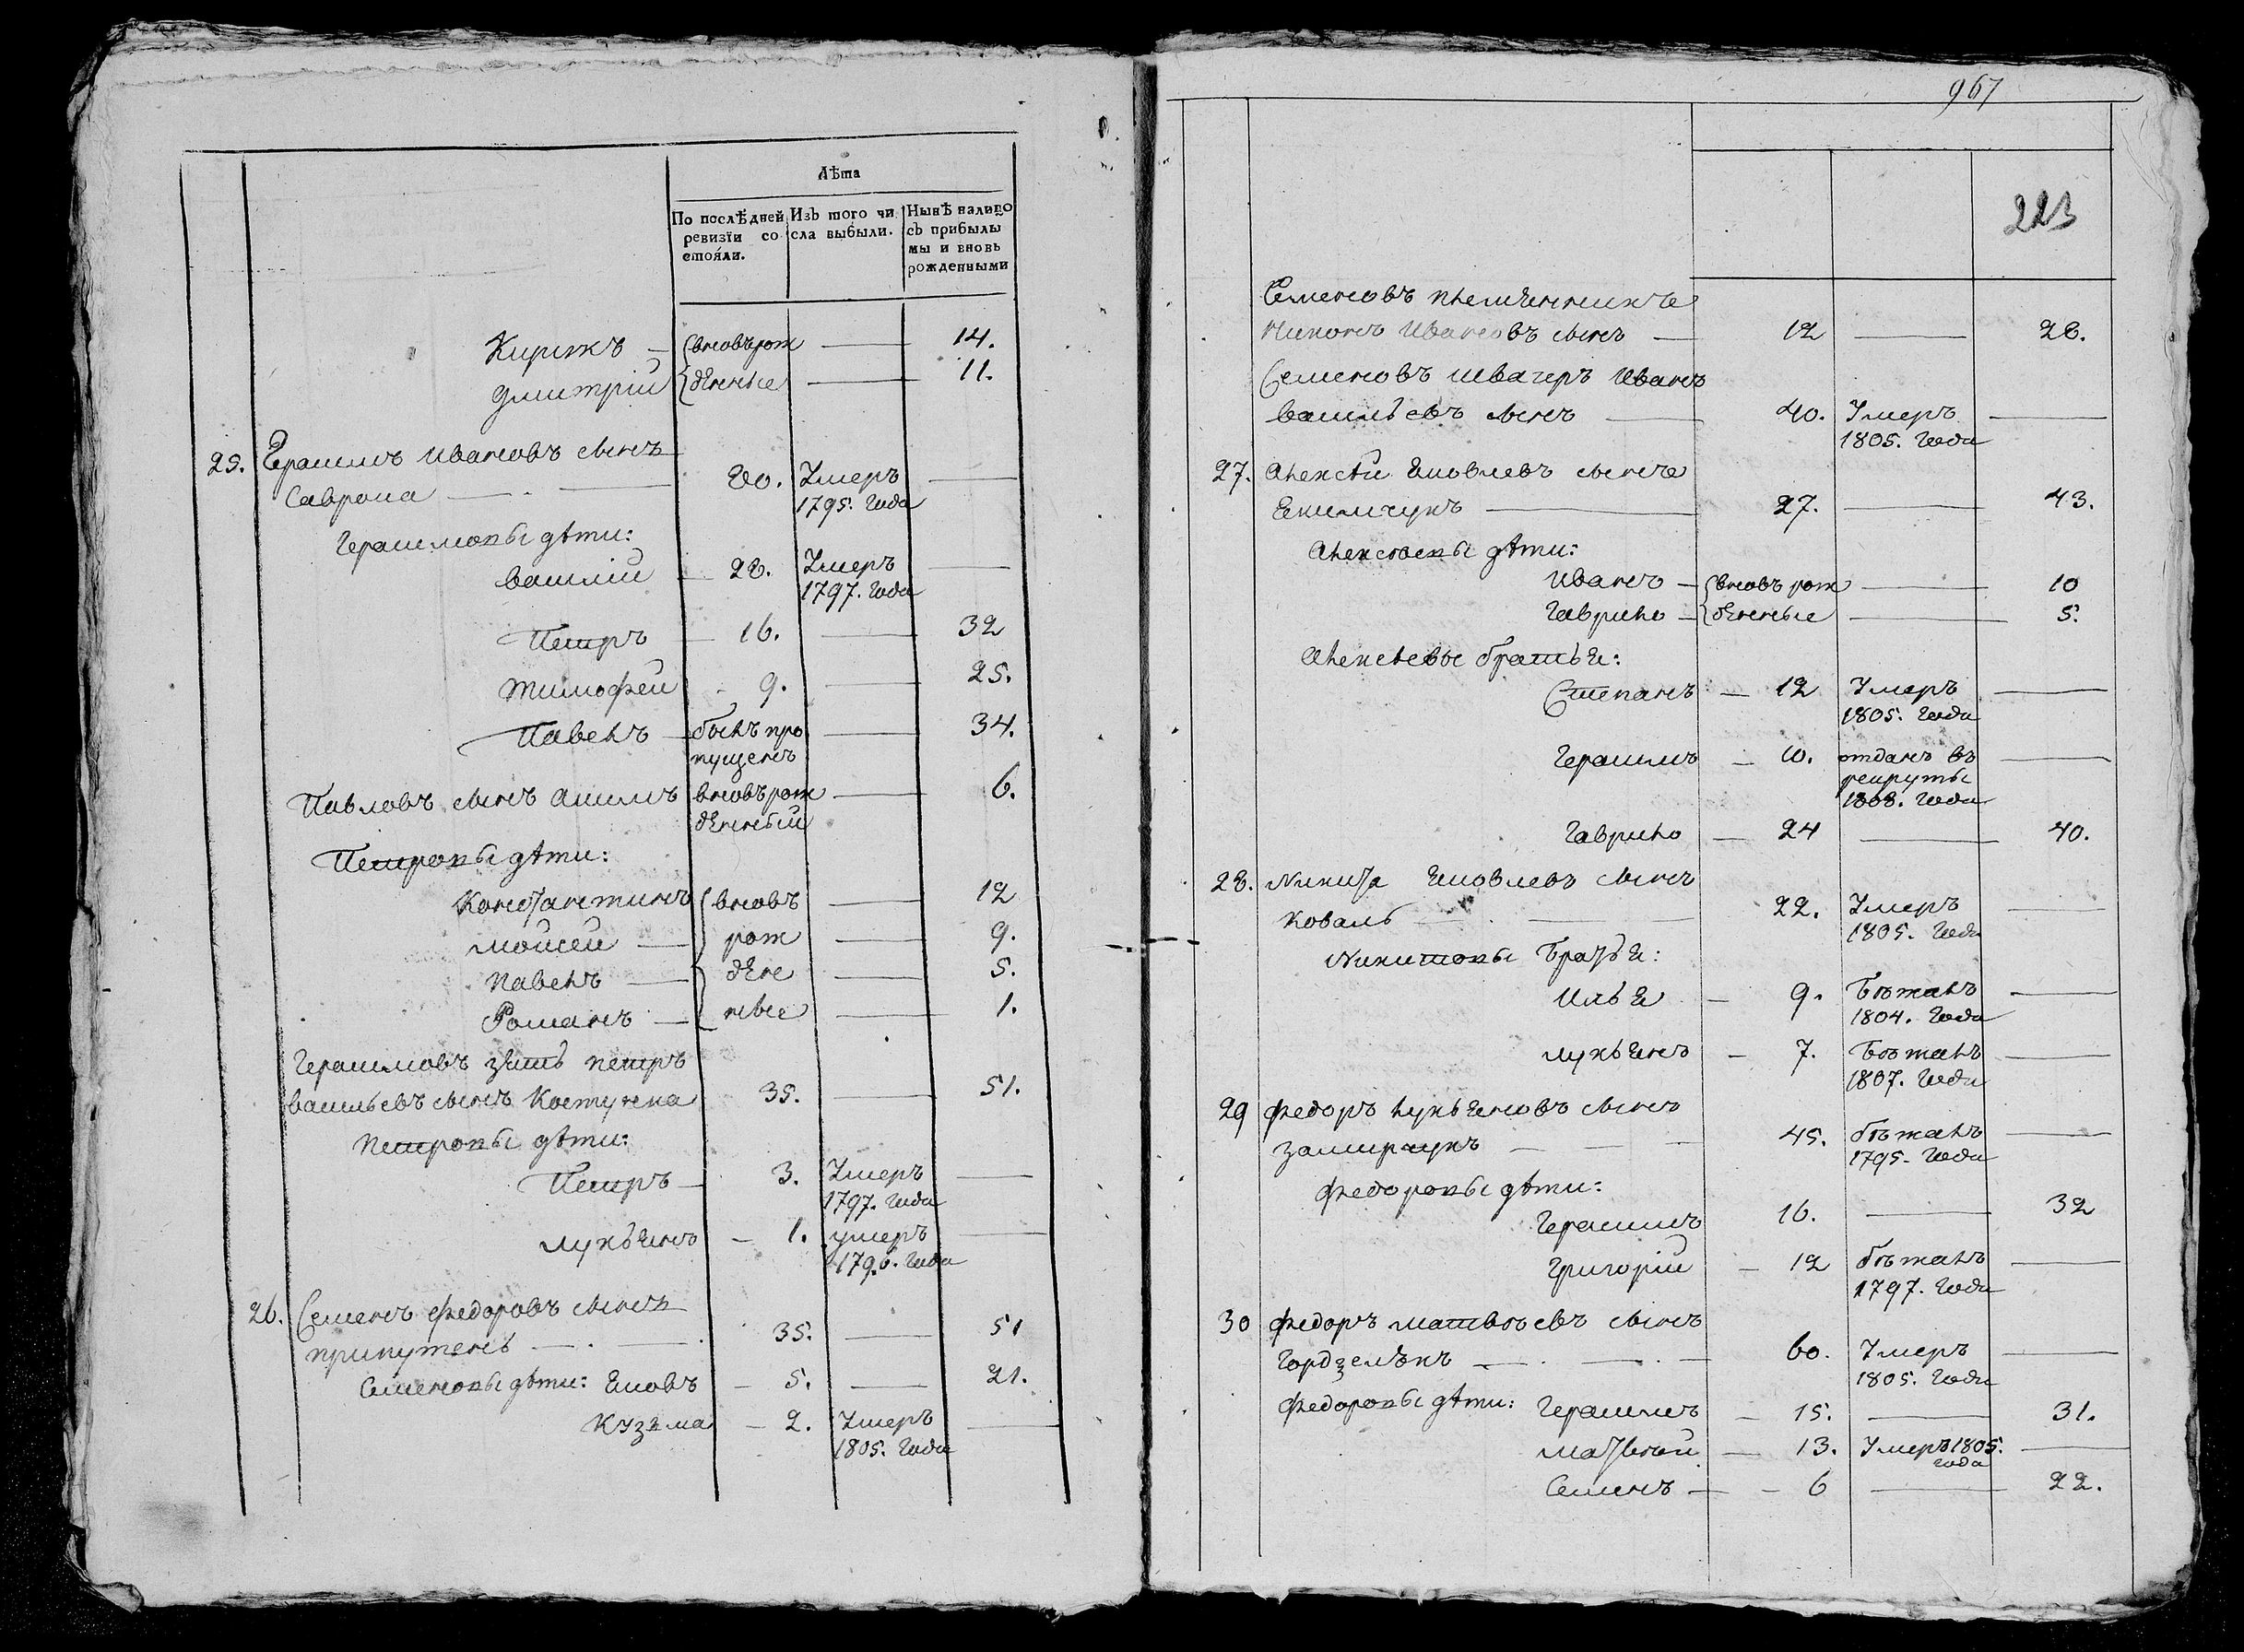 Лѣта
По послѣдней ревизїи состоя́ли.
Изъ того числа выбыли.
Нынѣ налицо съ прибылыми и вновь рожденными
Кирикъ — вновьрож — 14.
Дмитрій денные — 11.
25. Герасимъ Ивановъ сынъ
Саврона — 80. Умеръ —
1795. Года
Герасимовы дѣти:
Василій — 28. Умеръ —
1797. Года
Петръ — 16. — 32
Тимофей - 9. — 25.
Павелъ — былъ про — 34.
пущенъ
Павловъ сынъ Акимъ вновьрож — 6.
денный
Петровы дѣти:
Константинъ вновь — 12
Мойсей — рож — 9.
Павелъ — ден — 5.
Романъ — ные — 1.
Герасимовъ зять Петръ
Васильевъ сынъ 35. — 51.
Петровы дѣти:
Петръ — 3. Умеръ —
1797. Года
Лукьянъ — 1. умеръ —
1796. Года
26. Семенъ Федоровъ сынъ
Прикутень — 35. — 51
Семеновы дѣти: Яковъ — 5. — 21.
Кузьма — 2. Умеръ —
1805. Года
967
223
Семеновъ племянникъ
Никонъ Ивановъ сынъ — 12 — 28.
Семеновъ швагеръ Иванъ
Васильевъ сынъ — 40. Умеръ —
1805. Года
27. Алексѣй Яковлевъ сынъ
Якимчукъ — 27. — 43.
Алексѣевы дѣти:
Иванъ — вновь рож — 10
Гаврило — денные — 5.
Алексѣевы братья:
Степанъ — 12 Умеръ —
1805. Года
Герасимъ — 10. отданъ въ —
рекруты
1808. Года
Гаврило — 24 — 40.
28. Никита Яковлевъ сынъ
Коваль — 22. Умеръ —
1805. Года
Никитовы братья:
Илья — 9. Бѣжалъ —
1804. Года
Лукьянъ — 7. Бѣжалъ —
1807. Года
29 Федоръ Лукьяновъ сынъ
Замирчукъ — 45. бѣжалъ —
1795. Года
Федоровы дѣти:
Герасимъ 16. — 32
Григорій — 12 бѣжалъ —
1797. Года
30 Федоръ Матвѣевъ сынъ
Гордзелѣкъ — 60. Умеръ —
1805. Года
Федоровы дѣти: Герасимъ — 15. — 31.
Матвѣй — 13. Умеръ 1805. —
года
Семенъ — 6 — 22.